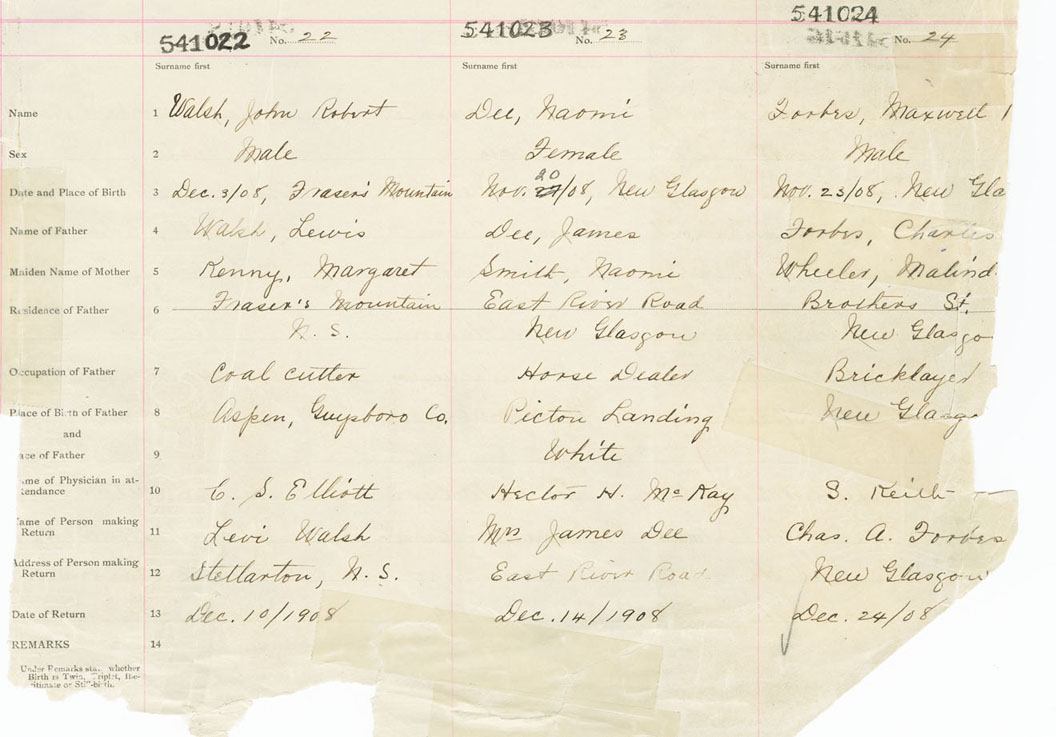 541022 No. 22 541023 No. 23 541024 No. 24
Surname first Surname first Surname first
Name 1 Walsh, John Robert Dee, Naomi Forbes, Maxwell
Sex 2 Male Female Male
Date and Place of Birth 3 Dec. 3/08, Fraser's Mountain Nov. 20/08, New Glasgow Nov. 23/08, New Gla
Name of Father 4 Walsh, Lewis Dee, James Forbes, Charles
Maiden Name of Mother 5 Kenny, Margaret Smith, Naomi Wheeler, Malind
Residence of Father 6 Fraser's Mountain East River Road Brothers St.
N. S. New Glasgow New Glasgo
Occupation of Father 7 Coal cutter Horse Dealer Bricklayer
Place of Birth of Father 8 Aspen, Guysboro Co. Pictou Landing New Glasgo
and
ace of Father 9 White
me of Physician in at-
tendance 10 C. S. Elliott Hector H. McKay S. Keith
ame of Person making
Return 11 Levi Walsh Mrs James Dee Chas. A. Forbes
Address of Person making
Return 12 Stellarton, N. S. East River Road New Glasgow
Date of Return 13 Dec. 10/1908 Dec. 14/1908 Dec. 24/08
REMARKS 14
Under Remarks whether
Birth is Twin, Triplet, Ille-
gitimate or Still-birth.